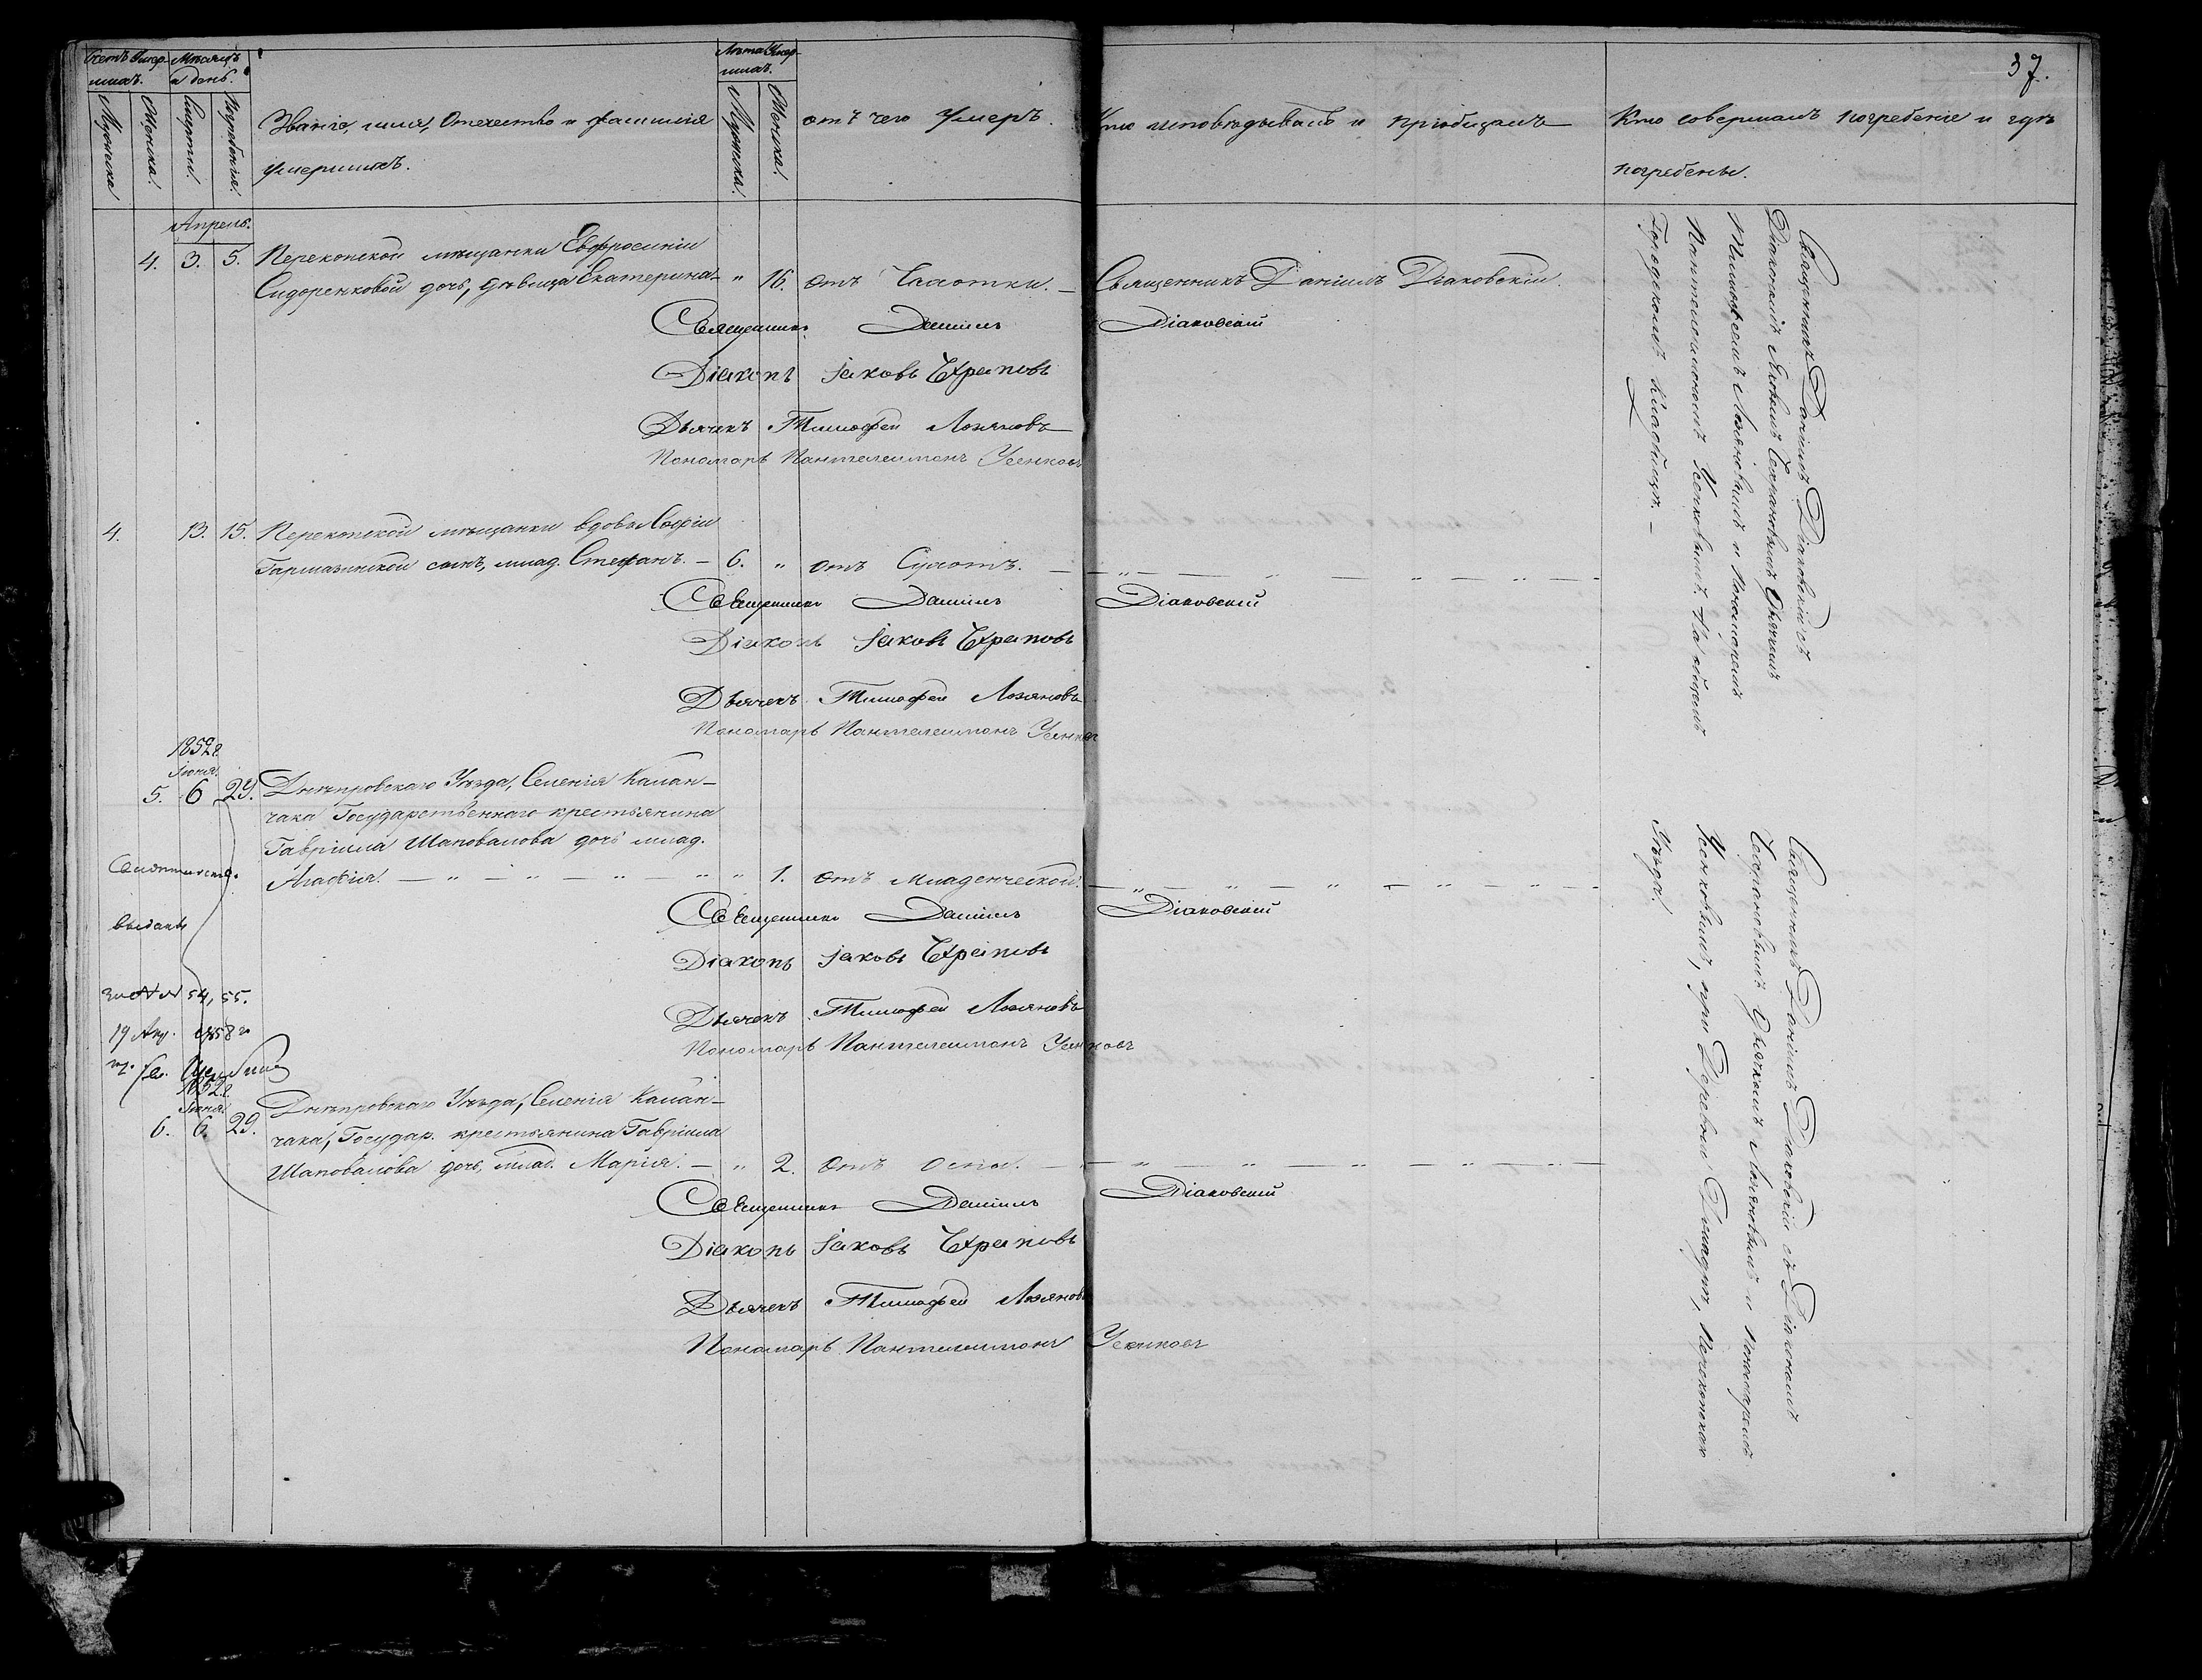 37.
Счетъ Умер-
шихъ.
Мѣсяцъ
и день.
Мужеска
Женска.
Смерти.
Погребенія.
Званіе, имя, Отечество и фамилія
умершихъ.
Лѣта Умер-
шихъ.
Мужеска.
Женска.
отъ чего Умеръ.
Кто исповѣдывалъ и пріобщалъ
Кто совершалъ погребеніе и гдѣ
погребены.
Апрель.
4. 3. 5. Перекопской мѣщанки Евфросиніи
Сидоренковой дочь, дѣвица Екатерина - " 16. отъ Чахотки. - Священникъ Даніилъ Діаковскій.
Священникъ Даніилъ Діаковскій
Діаконъ Іаковъ
Дьячекъ Тимофей Лозяновъ
Пономарь Пантелеимонъ Усенковъ
Священникъ Даніилъ Діаковскій съ
Діакономъ
Тимофеемъ Лозяновымъ и Пономоремъ
Пантелеимономъ Усенковымъ. На общемъ
Городскомъ кладбищѣ. -
4. 13. 15. Перекопской мѣщанки вдовы Софіи
сынъ, млад. Стефанъ. - 6. " отъ Сухотъ. - - " - " - " - " -
Священникъ Даніилъ Діаковскій
Діаконъ Іаковъ
Дьячекъ Тимофей Лозяновъ
Пономарь Пантелеимонъ Усенков
1852 г.
Іюня.
5. 6 29. Днѣпровскаго Уѣзда, Селенія Калан-
чака Государственнаго крестьянина
Гавріила Шаповалова дочь млад.
Агафія. - " - " - " " " 1. отъ младенческой. - " - " - " - " - " -
Священникъ Даніилъ Діаковскій
Діаконъ Іаковъ
Дьячекъ Тимофей Лозяновъ
Пономарь Пантелеимонъ Усенковъ
выданы
за №№ 54, 55.
1858 го
Священникъ Даніилъ Діаковскій съ Діакономъ
Дьячкомъ Лозяновымъ и Пономаремъ
Усенковымъ, при Деревне Перекопскаго
Уѣзда.
1852 г.
Іюня.
6. 6. 29. Днѣпровскаго Уѣзда, Селенія Калан-
чака, Государ. крестьянина Гавріила
Шаповалова дочь, млад. Марія. - " 2. отъ оспы. - - " - " - " - " -
Священникъ Даніилъ Діаковскій
Діаконъ Іаковъ
Дьячекъ Тимофей Лозяновъ
Пономарь Пантелеимонъ Усенковъ